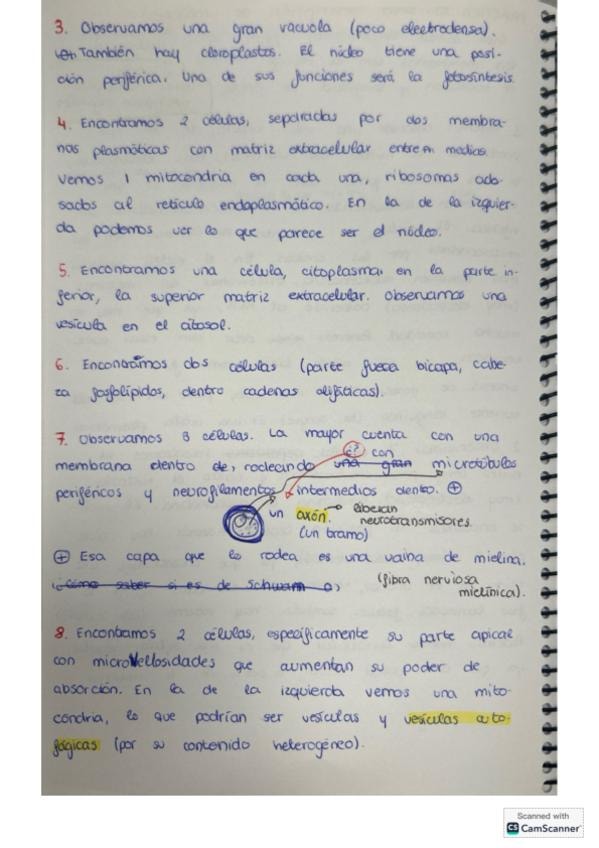 3. Observamos una gran vacuola (poco electrodensa).
También hay cloroplastos. El núcleo tiene una posi-
ción periférica. Una de sus funciones será la fotosíntesis.
4. Encontramos 2 células, separadas por dos membra-
nas plasmáticas con matriz extracelular entre medias.
Vemos 1 mitocondria en cada una, ribosomas ado-
sados al retículo endoplasmático. En la de la izquier-
da podemos ver lo que parece ser el núcleo.
5. Encontramos una célula, citoplasma en la parte in-
ferior, la superior matriz extracelular. Observamos una
vesícula en el citosol.
6. Encontramos dos células (parte fuera bicapa, cabe-
za fosfolípidos, dentro cadenas alifáticas).
7. Observamos 3 células. La mayor cuenta con una
¿? con
membrana dentro de, rodeando una gran microtúbulos
periféricos y neurofilamentos intermedios dentro. +
un axón. → liberan
neurotransmisores.
(un tramo)
+ Esa capa que lo rodea es una vaina de mielina.
¿Cómo saber si es de Schwann o,
(fibra nerviosa
mielínica).
8. Encontramos 2 células, específicamente su parte apical
con microvellosidades que aumentan su poder de
absorción. En la de la izquierda vemos una mito-
condria, lo que podrían ser vesículas y vesículas auto-
fágicas (por su contenido heterogéneo).
Scanned with
CS CamScanner